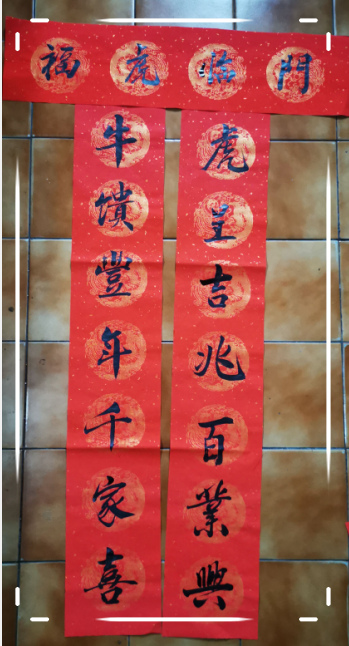 福虎臨門
虎呈吉兆百業興
牛饋豐年千家喜